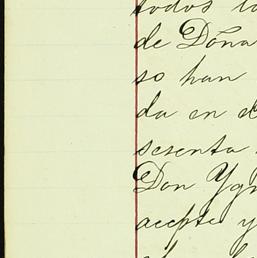 todos
de Doña
so han
da en el
sesenta
Don Ygn
acepte y